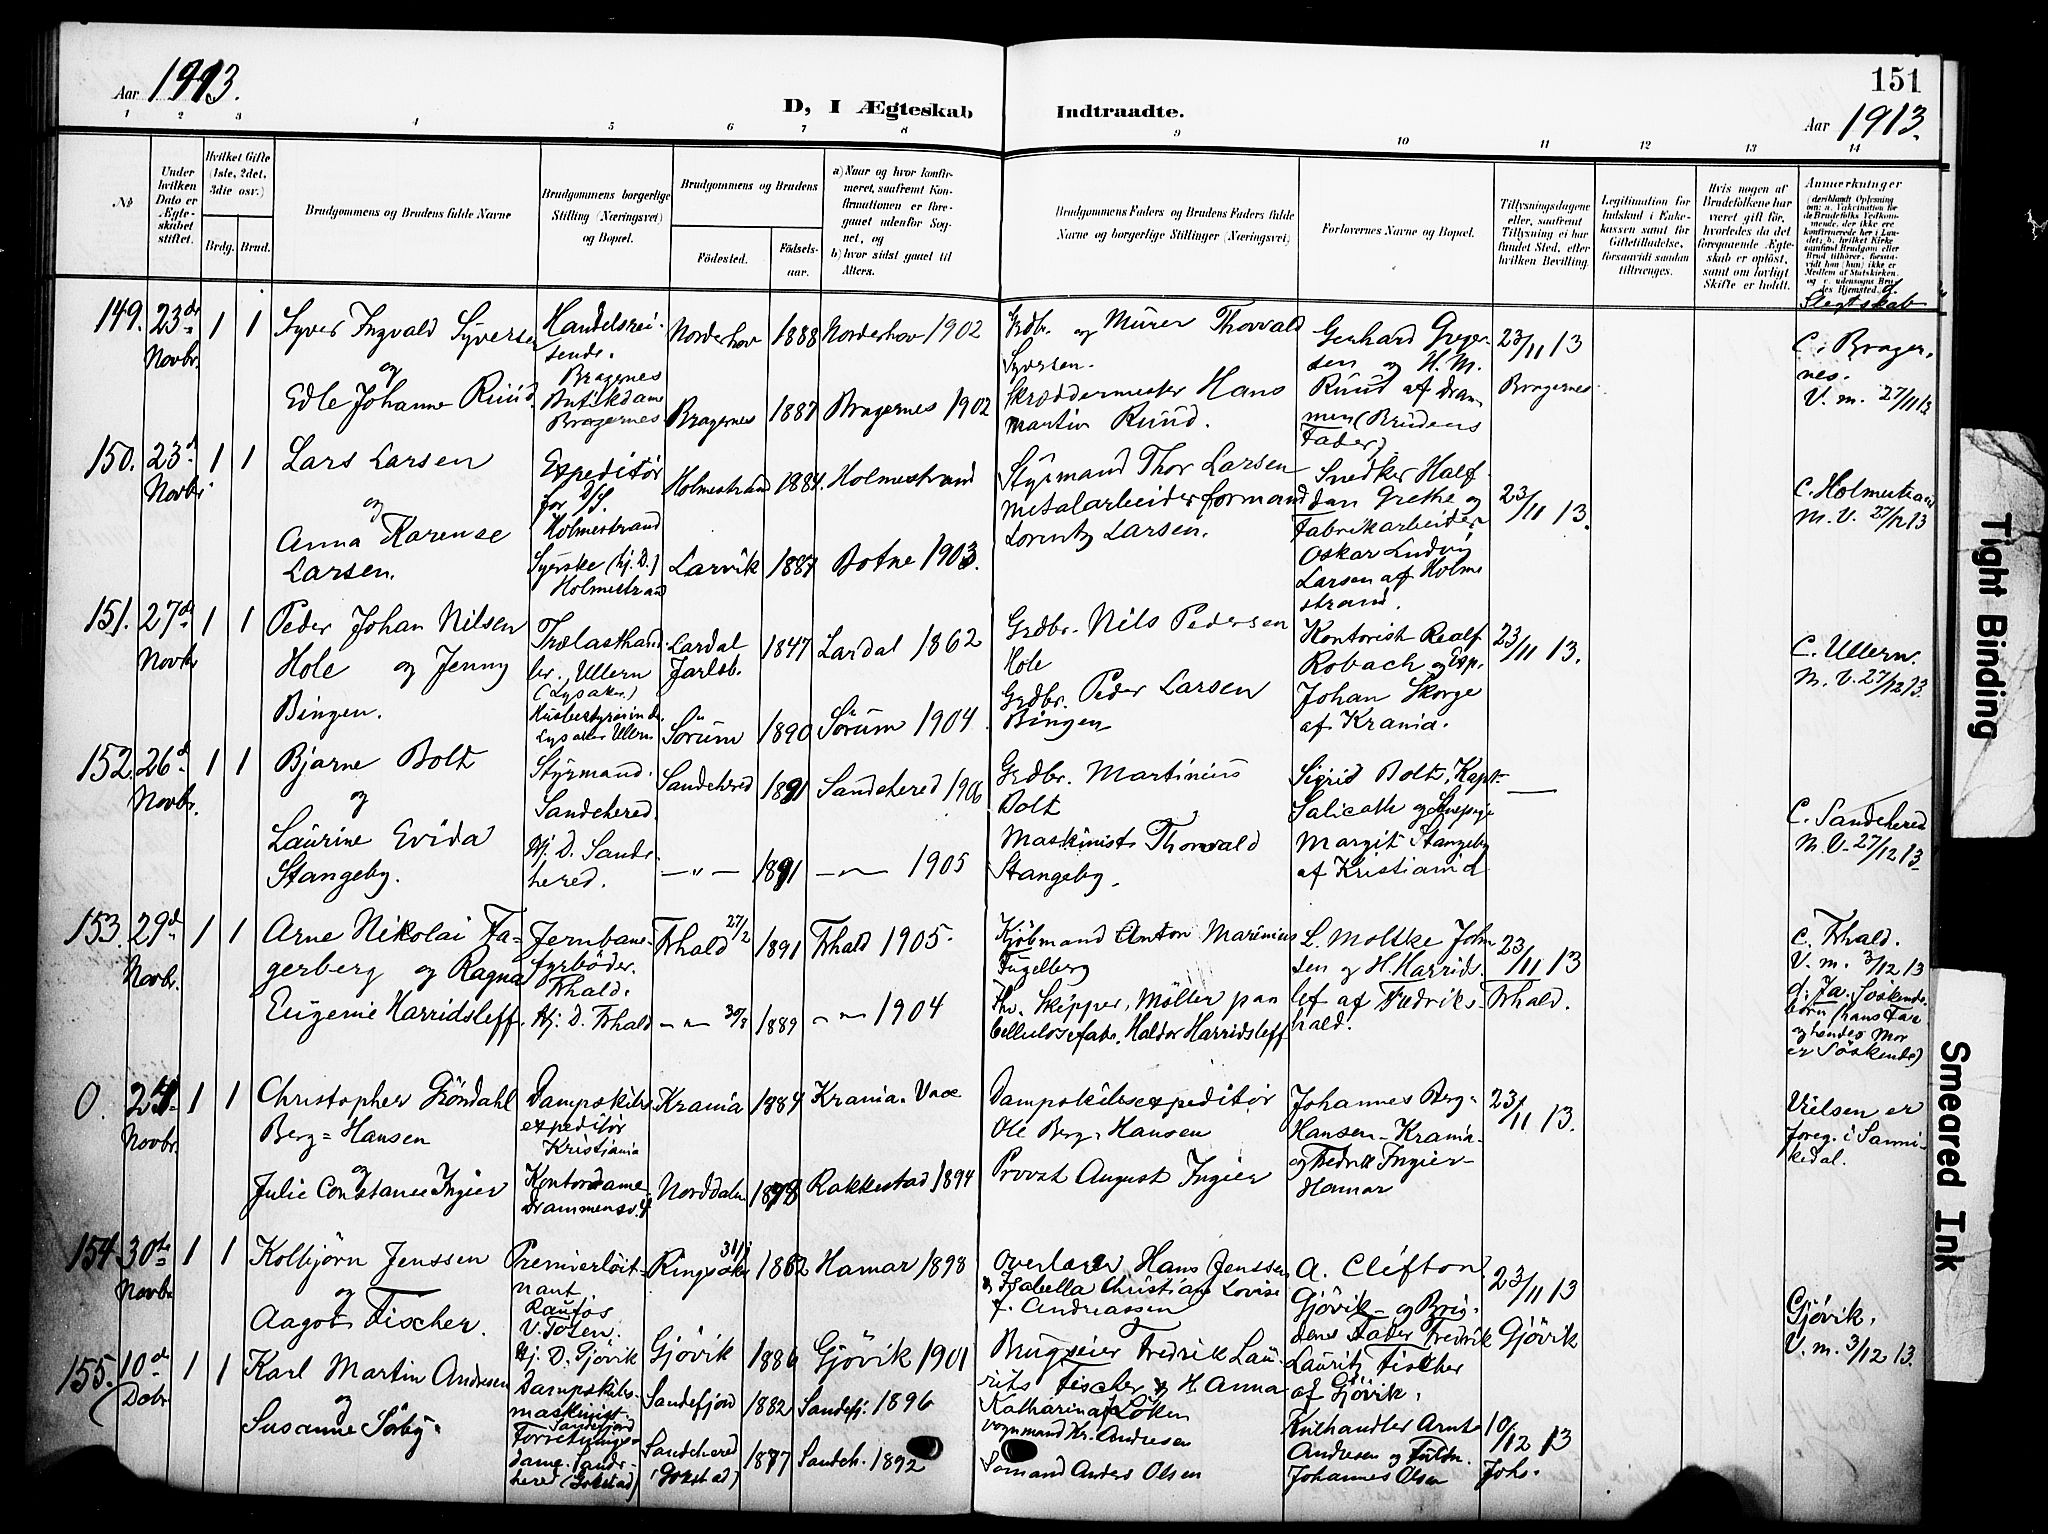 151
Aar 1913.
D, I Ægteskab Indtraadte.
Aar 1913.
1 2 3 4 5 6 7 8 9 10 11 12 13 14
№
Under hvilken Dato er Ægteskabet stiftet.
Hvilket Gifte (1ste, 2det, 3die osv.)
Brdg. Brud.
Brudgommens og Brudens fulde Navne
Brudgommens borgerlige Stilling (Næringsvei) og Bopæl.
Brudgommens og Brudens
Fødested. Fødselsaar.
a) Naar og hvor konfirmeret, saafremt Konfirmationen er foregaaet udenfor Sognet, og
b) hvor sidst gaaet til Alters.
Brudgommens Faders og Brudens Faders fulde Navne og borgerlige Stillinger (Næringsvei)
Forlovernes Navne og Bopæl.
Tillysningsdagene eller, saafremt Tillysning ei har fundet Sted, efter hvilken Bevilling.
Legitimation for Indskud i Enkekassen samt for Giftetilladelse, forsaavidt saadan tiltrænges.
Hvis nogen af Brudefolkene har været gift før, hvorledes da det foregaaende Ægteskab er opløst, samt om lovligt Skifte er holdt.
Anmærkninger
(deriblandt Oplysning om: a. Vakcination for de Brudefolks Vedkommende, der ikke ere konfirmerede her i Landet; b. hvilket Kirkesamfund Brudgom eller Brud tilhører, forsaavidt han (hun) ikke er Medlem af Statskirken, og c. udensogns Brudes Hjemsted. d.
Slegtskab
149. 23de Novbr. 1 1
Syver Ingvald Syversen
og
Edle Johanne Ruud.
Handelsreisende.
Bragernes
Butikdame
Bragernes
Norderhov 1888 Norderhov 1902
Bragernes 1887 Bragernes 1902
Grdbr. og Murer Thorvald
Syversen.
Skræddermester Hans
Martin Ruud.
Gerhard Greger
sen og H. M.
Ruud af Dram
men (Brudens
Fader)
23/11 13
Bragernes.
C. Brager.
nes.
V. m. 27/11 13
150. 23d Novbr 1 1
Lars Larsen
og
Anna Karense
Larsen.
Expeditør
for D/S.
Holmestrand
Syerske (hj. D.)
Holmestrand
Holmestrand 1884. Holmestrand
Larvik 1887 Botne 1903.
Styrmand Thor Larsen
Metalarbeiderformand
Lorentz Larsen.
Snedker Half
dan Grethe og
Fabrikarbeider
Oskar Ludvig
Larsen af Holme
strand.
23/11 13.
C. Holmestrand
M. V. 27/12 13
151. 27de Novbr 1 1
Peder Johan Nilsen
Hole og Jenny
Bingen.
Trælasthand
ler. Ullern
(Lysaker.)
Husbestyrerinde
Lysaker Ullern
Lardal
Jarlsb. 1847 Lardal 1862
Sørum 1890 Sørum 1904.
Grdbr. Nils Pedersen
Hole
Grdbr. Peder Larsen
Bingen
Kontorist Realf
Robach og Exp.
Johan Skorge
af Krania.
23/11 13.
C. Ullern.
M. V. 27/12 13.
152. 26d Novbr. 1 1
Bjarne Bolt
og
Laurine Evida
Stangeby.
Styrmand.
Sandehered.
Hj. D. Sande
hered.
Sandehered 1891 Sandehered 1906
— „ — 1891 — „ — 1905
Grdbr. Martinius
Bolt
Maskinist Thorvald
Stangeby.
Sigrid Bolt, Kapt
Salicath og
Margit Stangeby
af Kristiania
—
C. Sandehered
M. V. 27/12 13
153. 29d Novbr. 1 1
Arne Nikolai Fa-
gerberg og Ragna
Eugenie Harridsleff.
Jernbane-
fyrbøder.
Frhald.
Hj. D. Frhald
Frhald 27/2 1891 Frhald 1905.
— „ — 30/8 1889 — „ — 1904
Kjøbmand Anton Marinius
Fugelberg
Fhv. Skipper, Møller paa
Cellulosefabr. Haldor Harridsleff
L. Moltke John
sen og H. Harrids-
lef af Fredriks-
hald.
23/11 13
Frhald.
C. Frhald.
V. m. 3/12 13
d. Ja. Søskende-
børn (hans Far
og hendes Mor
er Søskende)
0. Novbr. 1 1
Christopher Grøndahl
Berg=Hansen
og
Julie Constance Ingier
Dampskibs-
expeditør
Kristiania
Kontordame
Drammensv. 4
Krania 1884 Krania. Vaae
Norddalen 1878 Rakkestad 1894
Dampskibsexpeditør
Ole Berg-Hansen
Provst August Ingier
Johannes Berg=
Hansen - Krania
og Fredrik Ingier-
Hamar
23/11 13.
Vielsen er
foreg. i Sanni-
kedal.
154. 30te Novbr 1 1
Kolbjørn Jenssen
og
Aagot Fischer.
Premierløit-
nant.
Raufos
V. Toten.
Hj. D. Gjøvik
Ringsaker 31/1 1882 Hamar 1898
Gjøvik 1886 Gjøvik 1901
Overlærer Hans Jenssen
& Isabella Christiane Lovise
f. Andreassen
Brugseier Fredrik Lau-
rits Fischer & H. Anna
Katharina f. Løken
A. Clifton
Gjøvik - og Bru-
dens Fader Fredrik
Lauritz Fischer
af Gjøvik.
23/11 13
Gjøvik
Gjøvik.
V. m. 3/12 13.
155. 10d Debr 1 1
Karl Martin Andresen
og
Susanne Sørby
Dampskibs-
maskinist
Sandefjord
Forretnings-
dame. Sande-
hered (Gokstad)
Sandefjord 1882 Sandefj. 1896
Sandehered
(Gokstad) 1877 Sandeh. 1892
Vognmand Kr. Andresen
Sømand Anders Olsen
Kulhandler Arnt
Andresen og Fuldm.
Johannes Olsen
10/12 13
Johs.
Tight Binding
Smeared Ink